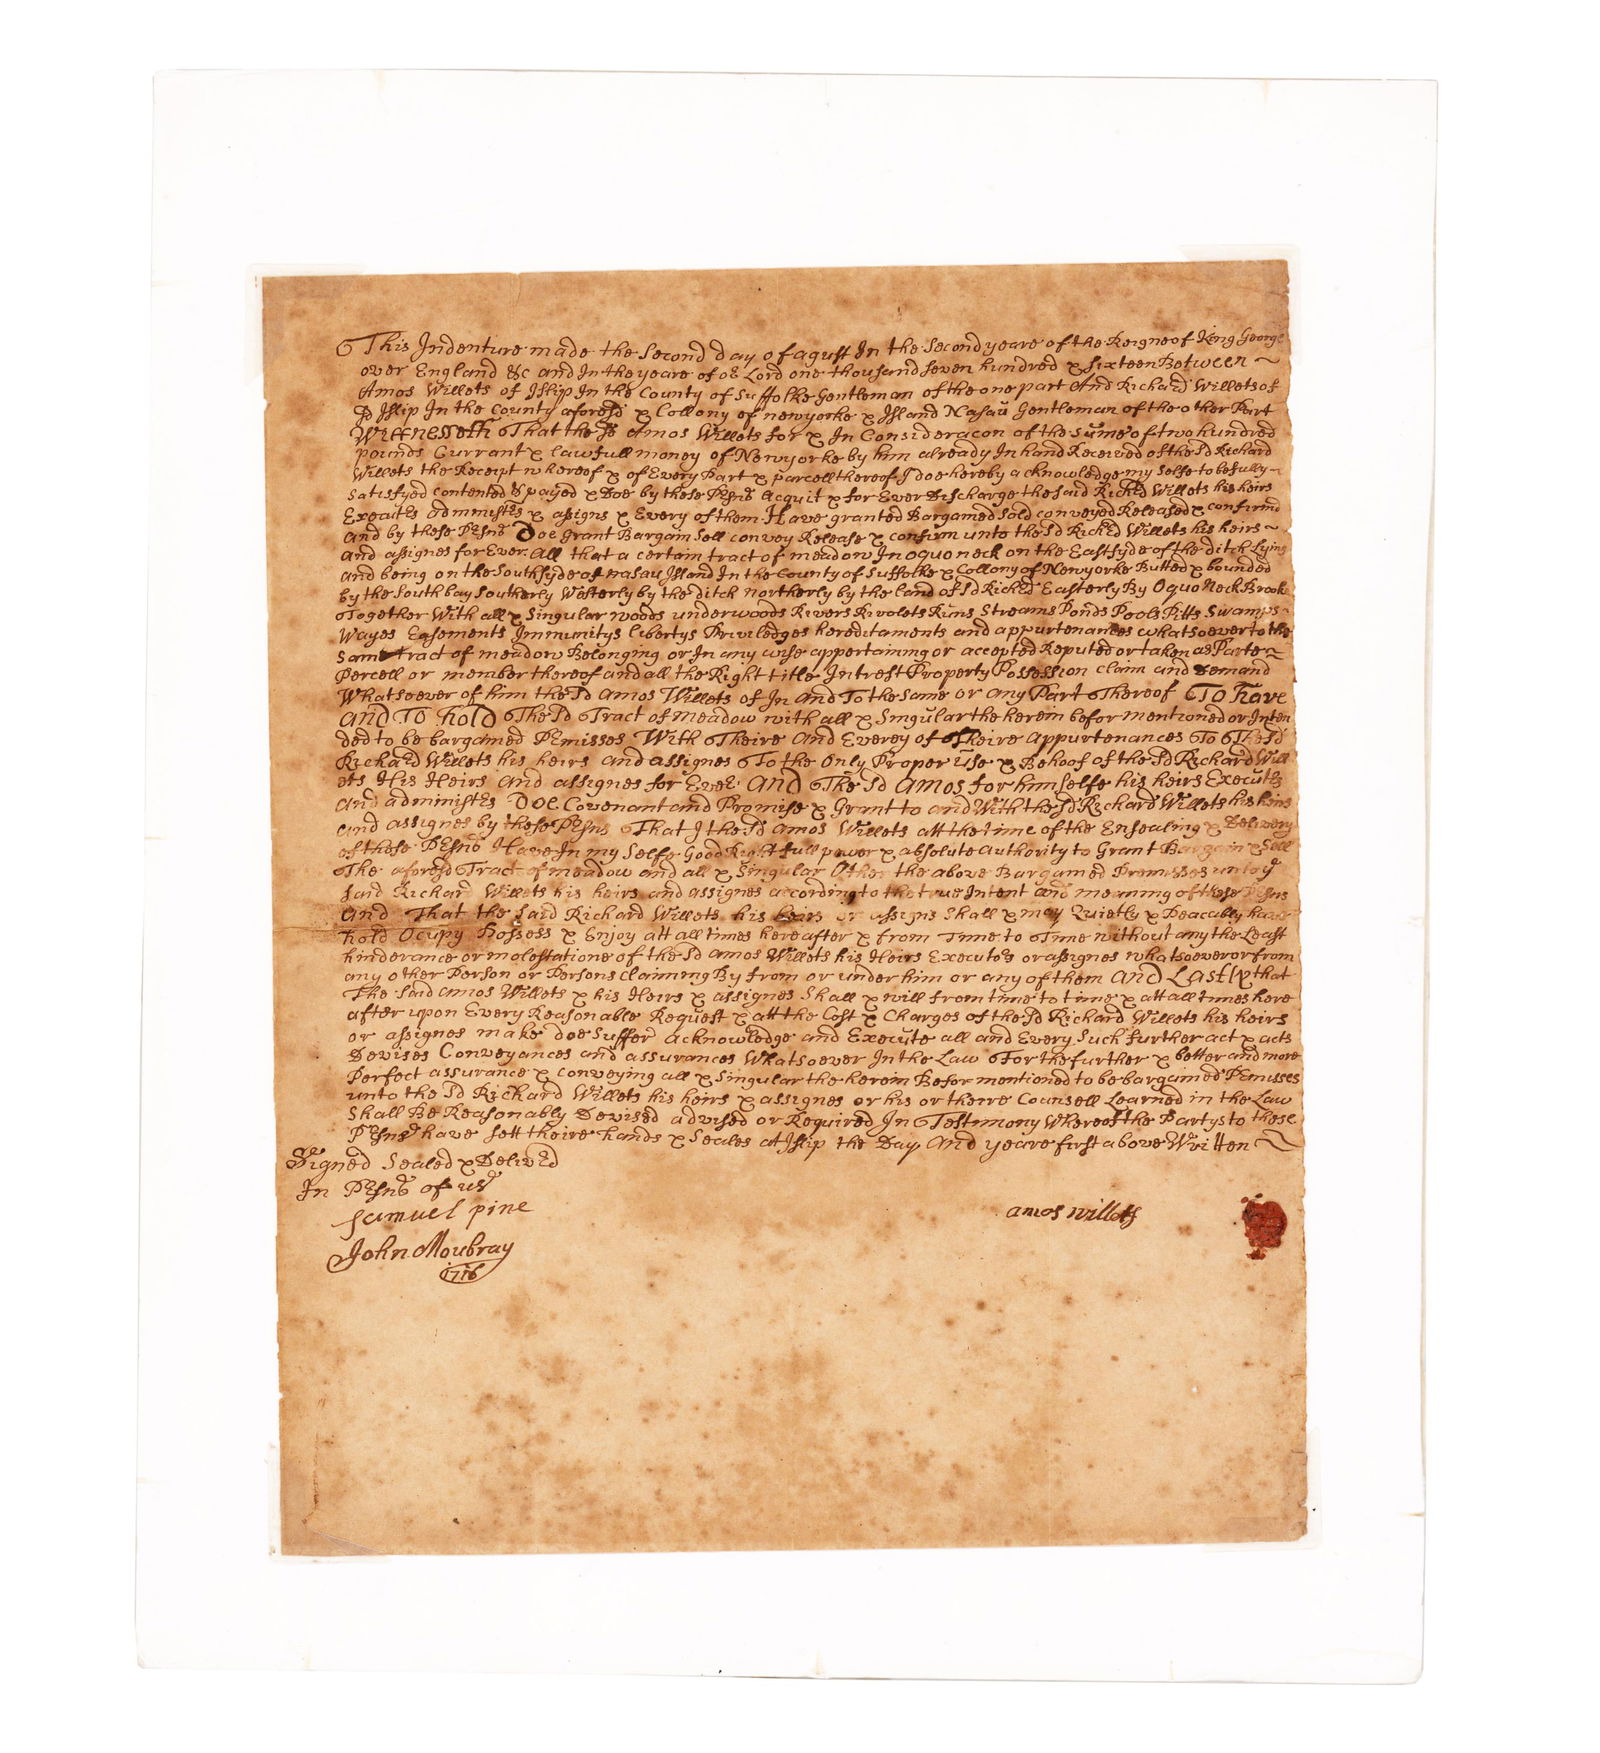 This Indenture made the Second day of agust In the Second yeare of the Reigne of King George
over England &c and In the yeare of or Lord one thousand Seven hundred & Sixteen Between ~
Amos Willets of Islip In the County of Suffolke Gentleman of the one part And Richard Willets of
Sd Islip In the County aforesd & Collony of newyorke & Island Nasau Gentleman of the other Part
Wittnesseth That the Sd Amos Willets for & In Consideracon of the sume of two hundred
pounds Currant & lawfull money of Newyorke by him already In hand Received of the Sd Richard
Willets the Receipt whereof & of Every Part & parcell thereof I doe hereby acknowledge my Selfe to be fully ~
Satisfyed contented & payed & Doe by these Presnts acquit & for Ever Discharge the said Richrd Willets his heirs
Execütrs administrs & assigns & Every of them Have granted Bargained Sold conveyed Released & confirmd
and by these Presnts Doe grant Bargain Sell convey Release & confirm unto the Sd Richrd Willets his heirs ~
and assignes for Ever. All that a certain tract of meadow In oquo neck on the East Syde of the ditch Lying
and being on the South Syde of nasau Island In the County of Suffolke & Collony of Newyorke Butted & bounded
by the South bay Southerly Westerly by the ditch northerly by the land of Sd Richrd Easterly By Oquo Neck Brook
Together With all & Singular woods underwoods Rivers Rivolets Runs Streams Ponds Pools Pitts Swamps ~
Wayes Easements Immunitys libertys Priviledges hereditaments and appurtenances whatsoever to the
Same tract of meadow Belonging or In any wise appertaining or accepted Reputed or taken as Parte ~
Percell or member thereof and all the Right title Intrest Property Possession claim and Demand
Whatsoever of him the Sd Amos Willets of In and To the Same or any Part Thereof To have
and To hold The Sd Tract of meadow with all & Singular the herein befor mentioned or Inten
ded to be bargained Premisses With Theire and Everey of Theire appurtenances To The Sd
Richard Willets his heirs and assignes To the Only Proper use & Behoof of the Sd Richard Will
ets His Heirs and assignes for Ever. And The Sd Amos for himselfe his heirs Executrs
and administrs Doe Covenant and Promise & Grant to and With the Sd Richard Willets his heirs
and assignes by these Presnts That I the Sd Amos Willets att the time of the Ensealing & Delivery
of these Presnts Have In my Selfe Good Right full power & absolute Authority to Grant Bargain & Sell
The aforesd Tract of meadow and all & Singular Other the above Bargained Premisses unto ye
Said Richard Willets his heirs and assignes according to the true Intent and meaning of these Presnts
And That the Said Richard Willets his heirs or assigns Shall & may Quietly & Peacably have
hold Ocupy Possess & Enjoy att all times hereafter & from Time to Time without any the Least
hinderance or molestatione of the Sd Amos Willets his Heirs Executors or assignes whatsoever or from
any other Person or Persons claiming By from or under him or any of them And Lastly that
The Said Amos Willets & his Heirs & assignes Shall & will from time to time & att all times here
after upon Every Reasonable Request & att the Cost & Charges of the Sd Richard Willets his heirs
or assignes make doe Suffer acknowledge and Execute all and Every Such further act & acts
Devises Conveyances and assurances Whatsoever In the Law For the further & better and more
Perfect assurance & conveying all & Singular the herein Befor mentioned to be bargained Premisses
unto the Sd Richard Willets his heirs & assignes or his or theire Counsell Learned in the Law
Shall Be Reasonably Devised advised or Required In Testimony Whereof the Partys to these
Presnts have Sett theire hands & Seales at Islip the Day and yeare first above Written ~
Signed Sealed & Delivred
In Presnts of us
Samuel pine
amos willets
John Moubray
1716